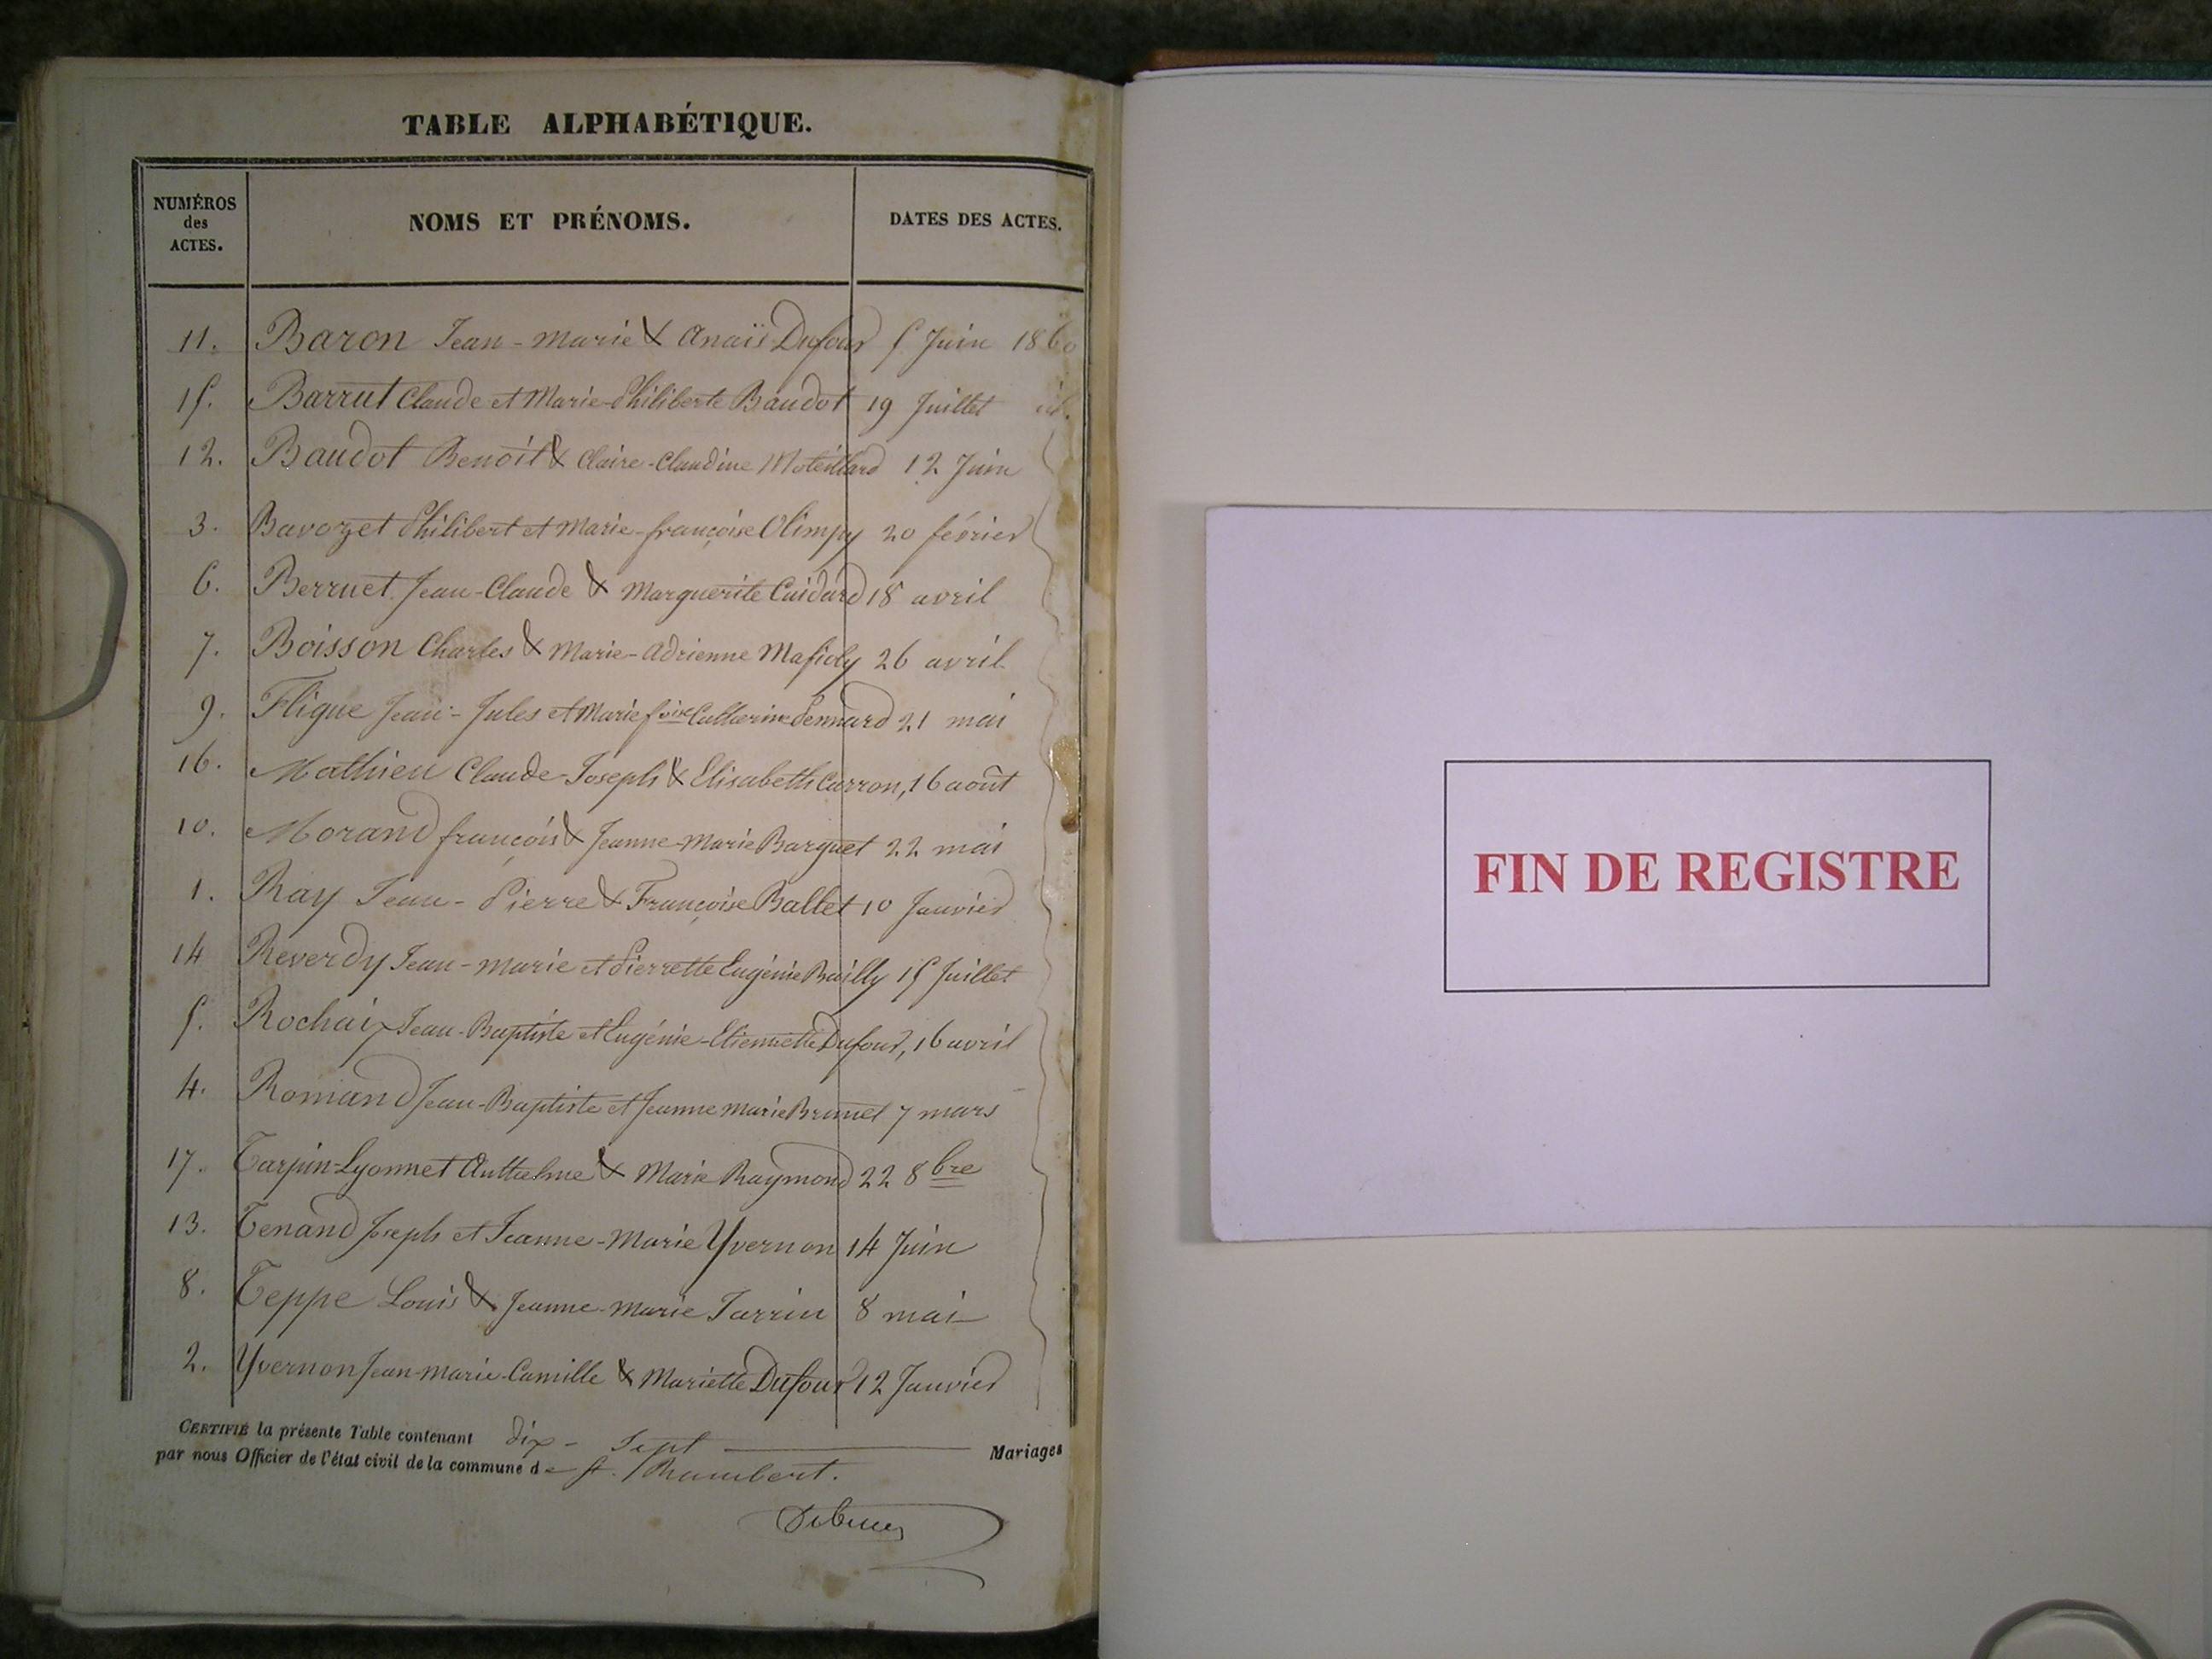 TABLE ALPHABÉTIQUE.
NUMÉROS
des
ACTES.
NOMS ET PRÉNOMS.
DATES DES ACTES.
11. Baron Jean-Marie & Anaïs Dufour 5 Juin 1860
15. Barrut Claude et Marie-Philiberte Baudot 19 Juillet id.
12. Baudot Benoit & Claire-Claudine 12 Juin
3. Bavozet Philibert et Marie-françoise Olimpy 20 février
6. Berruet Jean-Claude & Marguerite Cuidard 18 avril
7. Boisson Charles & Marie-Adrienne 26 avril
9. Fligue Jean-Jules et Marie foise Catherine 21 mai
16. Mathieu Claude-Joseph & Elisabeth Carron, 16 août
10. Morand françois & Jeanne-Marie Barquet 22 mai
1. Ray Jean-Pierre & Françoise Ballet 10 Janvier
14 Reverdy Jean-Marie et Pierrette Eugénie Bailly 15 Juillet
5. Rochaix Jean-Baptiste et Eugénie-Etiennette Dufour, 16 avril
4. Romand Jean-Baptiste et Jeanne Marie Brunet 7 mars
17. Tarpin-Lyonnet Anthelme & Marie Raymond 22 8bre
13. Tenand Joseph et Jeanne-Marie Yvernon 14 Juin
8. Teppe Louis & Jeanne-Marie Tarrin 8 mai
2. Yvernon Jean-Marie-Camille & Mariette Dufour 12 Janvier
CERTIFIÉ la présente Table contenant dix-sept Mariages
par nous Officier de l'état civil de la commune de St. Rambert.
FIN DE REGISTRE